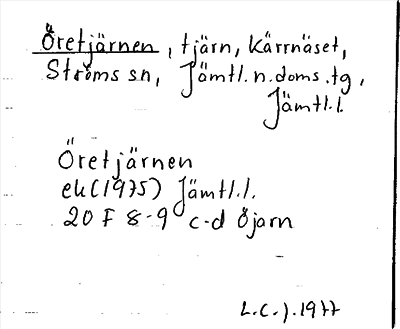 Öretjärnen, tjärn, Kärrnäset,
Ströms sn, Jämtl.n.doms.tg,
Jämtl.l.
Öretjärnen
ek(1975) Jämtl.l.
20 F 8-9 c-d Öjarn
L.C.J.1977